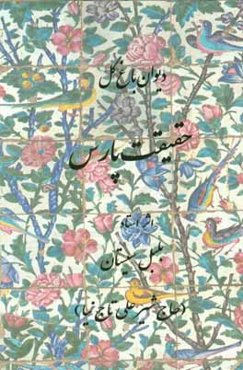 دیوان باغ گل
حقیقت پارس
اثر استاد
بلبل سیستان
(حاج شیرعلی تاج نیا)